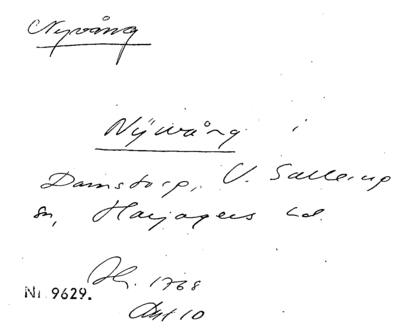 Nyvång
Nÿwång i
Damstorp, V. Sallerup
sn, Harjagers hd.
Jhr. 1768
Nr 9629.
Akt 10